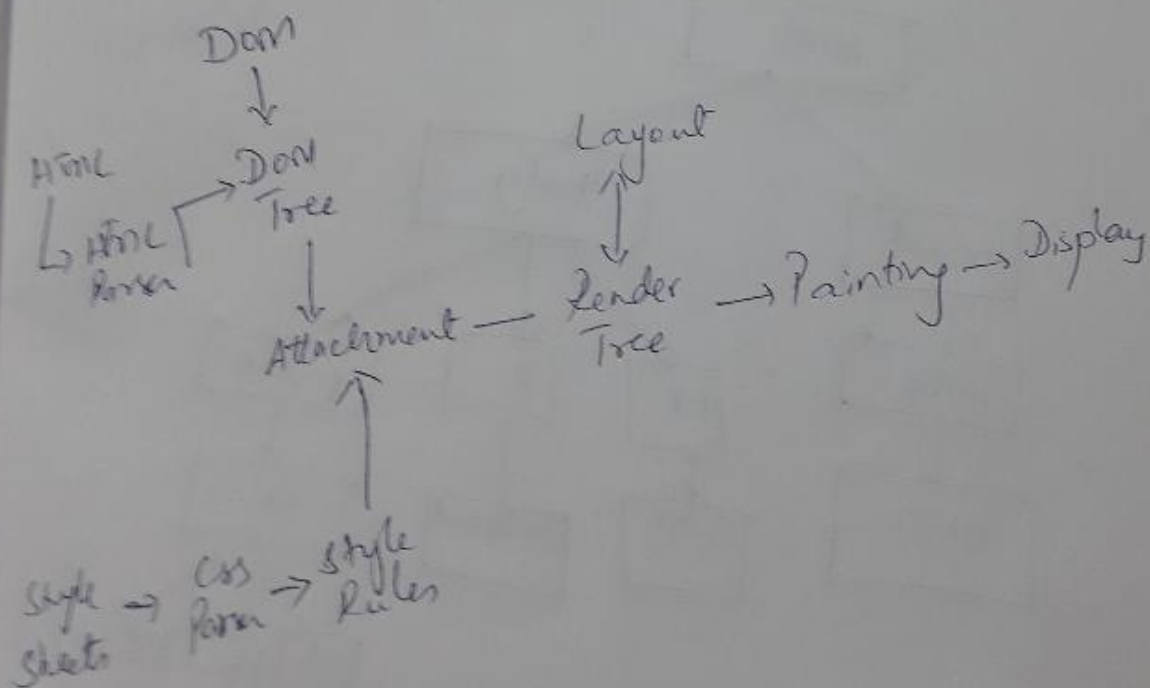 DOM
HTML
DOM
Tree
HTML
Parser
Layout
Attachment
Render
Tree
Painting
Display
Style
Sheets
CSS
Parser
Style
Rules